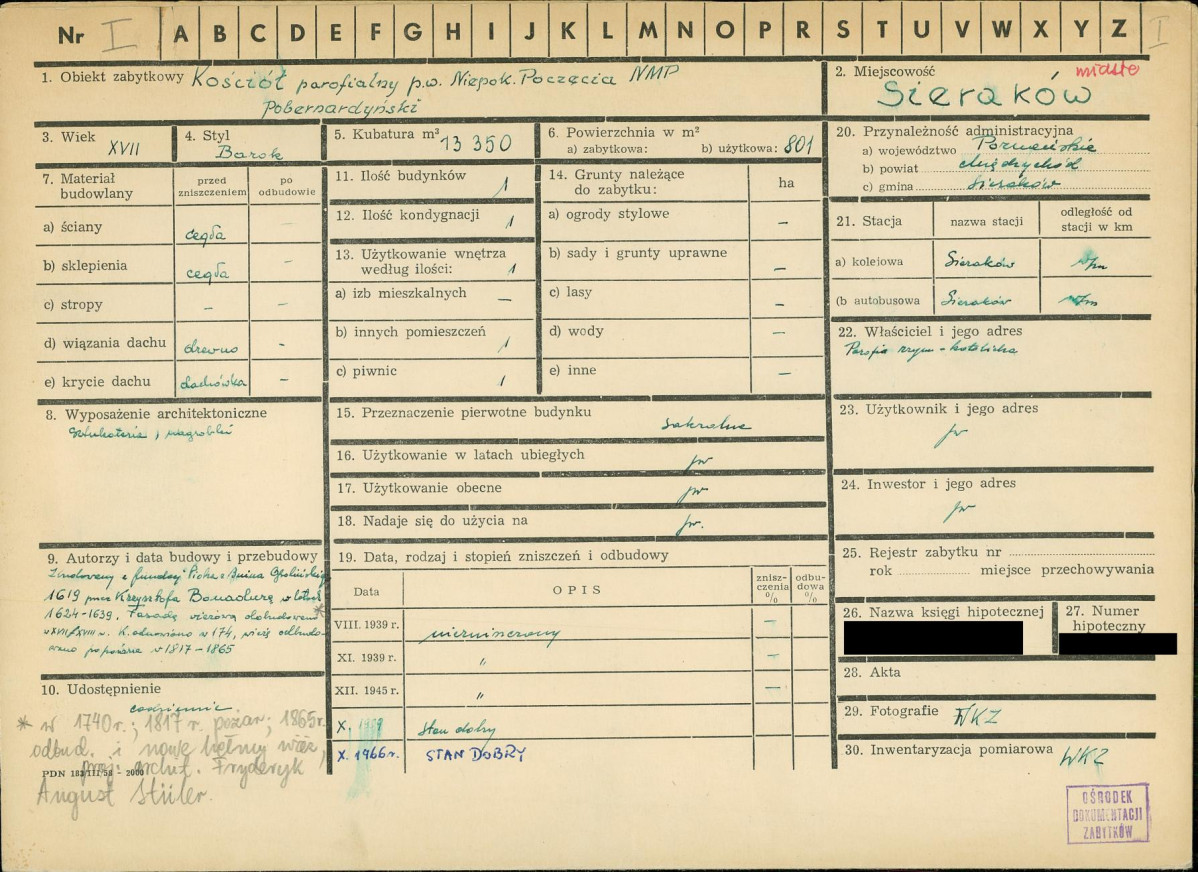 Nr I A B C D E F G H I J K L M N O P R S T U V W X Y Z I
1. Obiekt zabytkowy Kościół parafialny p.w. Niepok. Poczęcia NMP
Pobernardyński
2. Miejscowość miasto
Sieraków
3. Wiek XVII
4. Styl
Barok
5. Kubatura m³ 13 350
6. Powierzchnia w m²
a) zabytkowa: b) użytkowa: 801
20. Przynależność administracyjna
a) województwo Poznańskie
b) powiat Międzychód
c) gmina Sieraków
7. Materiał budowlany
przed zniszczeniem
po odbudowie
a) ściany cegła –
b) sklepienia cegła –
c) stropy – –
d) wiązania dachu drewno -
e) krycie dachu dachówka –
11. Ilość budynków 1
12. Ilość kondygnacji 1
13. Użytkowanie wnętrza
według ilości: 1
a) izb mieszkalnych –
b) innych pomieszczeń 1
c) piwnic 1
14. Grunty należące
do zabytku: ha
a) ogrody stylowe –
b) sady i grunty uprawne –
c) lasy –
d) wody –
e) inne –
21. Stacja
nazwa stacji
odległość od
stacji w km
a) kolejowa Sieraków
(b autobusowa Sieraków
22. Właściciel i jego adres
Parafia rzym-katolicka
8. Wyposażenie architektoniczne
Sztukaterie, nagrobki
15. Przeznaczenie pierwotne budynku
sakralne
16. Użytkowanie w latach ubiegłych jw
17. Użytkowanie obecne jw
18. Nadaje się do użycia na jw.
23. Użytkownik i jego adres
jw
24. Inwestor i jego adres
jw
9. Autorzy i data budowy i przebudowy
Zbudowany z fundacji Piotra z Bnina Opalińskiego
1619 przez Krzysztofa Bonadurę w latach
1624-1639. Fasadę wieżową dobudowano *
w XVII/XVIII w. K. odnowiono w 174, wieżę odbudo-
wano po pożarze w 1817-1865
10. Udostępnienie
codziennie
* w 1740 r.; 1817 r. pożar; 1865 r.
odbud. i nowe hełmy wież,
proj. archit. Fryderyk
PDN 183/III/58 - 2000
August Stüler.
19. Data, rodzaj i stopień zniszczeń i odbudowy
Data OPIS
znisz-
czenia
%
odbu-
dowa
%
VIII. 1939 r. niezniszczony –
XI. 1939 r. " –
XII. 1945 r. " –
X. 1959 Stan dobry
X. 1966 r. STAN DOBRY
25. Rejestr zabytku nr
rok miejsce przechowywania
26. Nazwa księgi hipotecznej
27. Numer
hipoteczny
28. Akta
29. Fotografie WKZ
30. Inwentaryzacja pomiarowa WKZ
OŚRODEK
DOKUMENTACJI
ZABYTKÓW